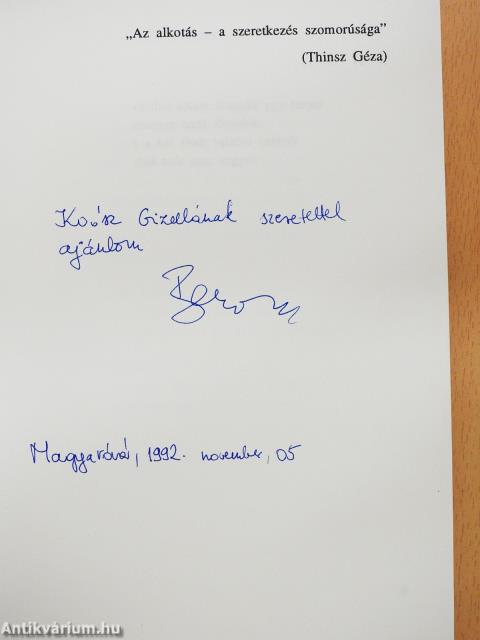 „Az alkotás – a szeretkezés szomorúsága”
(Thinsz Géza)
Gizellának szeretettel
ajánlom
Magyaróvár, 1992. november, 05
Antikvárium.hu